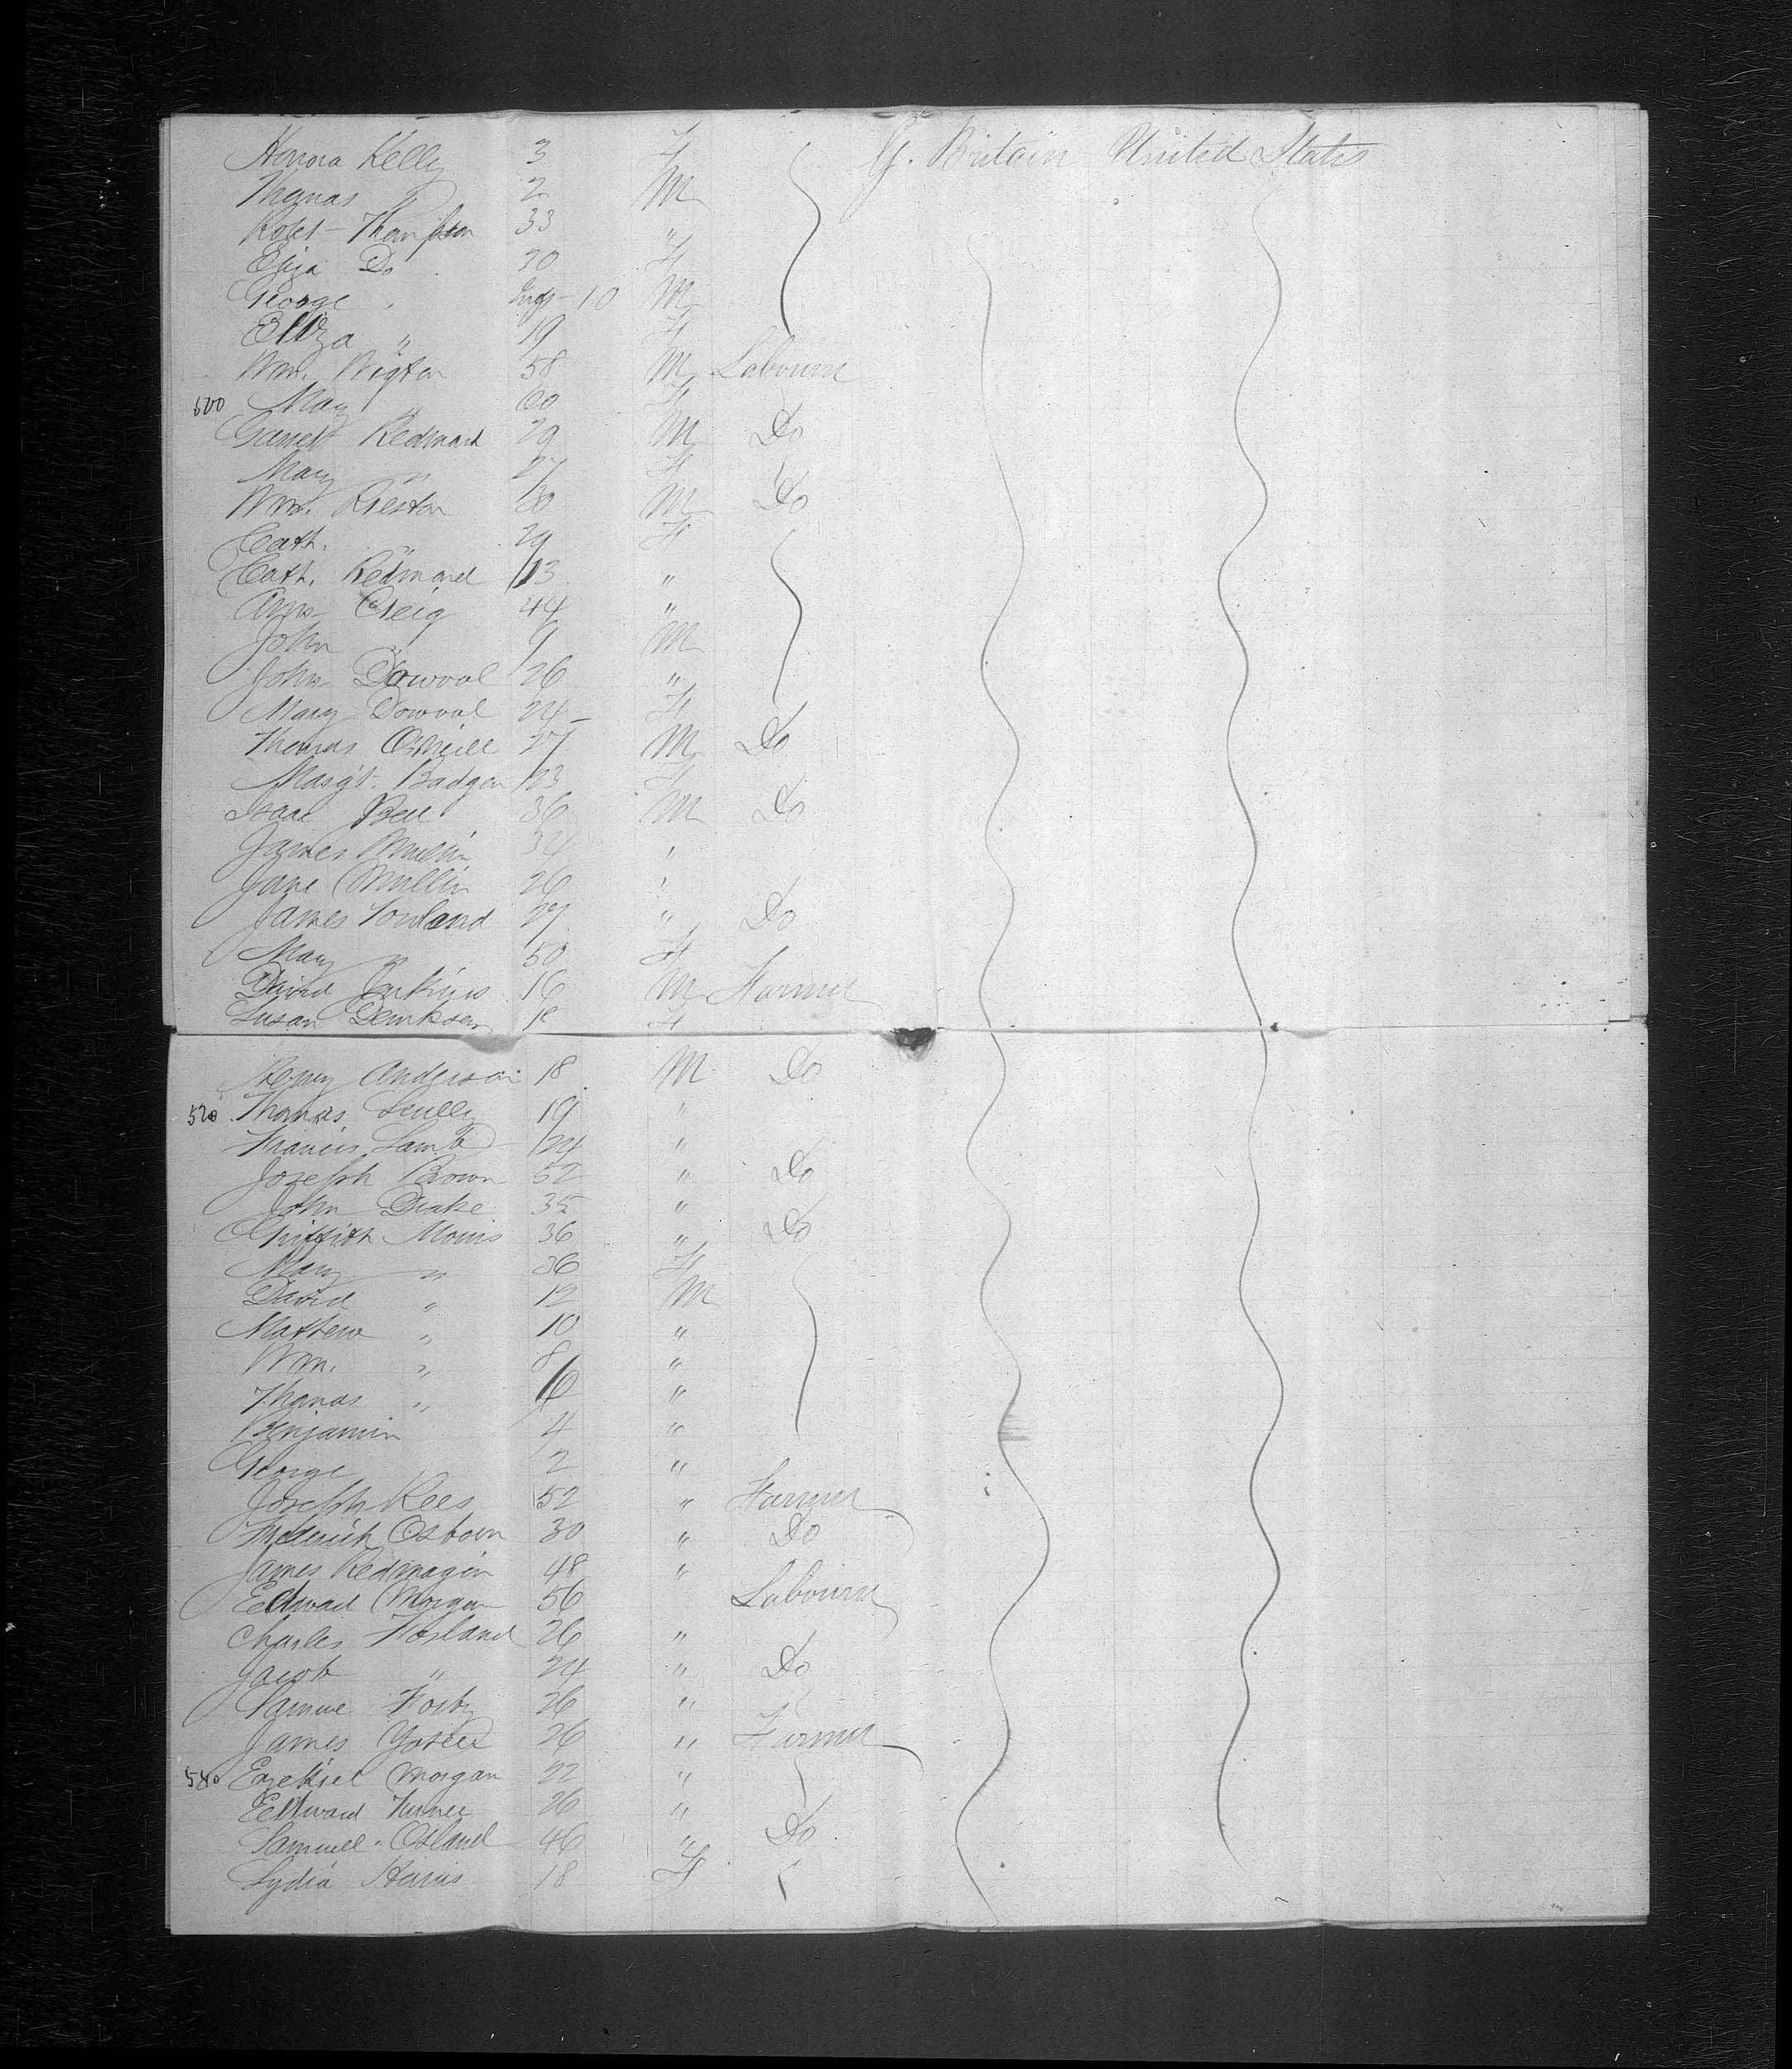 Honora Kelly 3 F G. Britain United States
Thomas " 2 M
Robt Thompson 33 "
Eliza Do 20 F
George " 10 M
Eliza " 19 F
Wm. Wigton 58 M Labourer
500 Mary " 60 F
Garrett Redmond 29 M Do
Mary " 27 F
Wm. Preston 30 M Do
Cath. " 29 F
Cath. Redmond 13 "
Ann Creig 44 "
John " 9 M
John Dowval 26 "
Mary Dowval 24 F
Thomas O'Neill 27 M Do
Margt. Badger 23 F
Isaac Bell 36 M Do
James Mullin 34 "
Jane Mullin 26 "
James Rowland 27 " Do
Mary " 50 F
David Jenkins 16 M Farmer
Susan 18 F
Henry Anderson 18 M Do
520 Thomas Scully 19 "
Francis Lamb 24 "
Joseph Brown 52 " Do
John Drake 35 "
Griffith Morris 36 " Do
Mary " 36 F
David " 12 M
Mathew " 10 "
Wm. " 8 "
Thomas " 6 "
Benjamin 4 "
George 2 "
Joseph Rees 52 " Farmer
Frederick Osborn 30 " Do
James 48 "
Edward Morgan 56 Labourer
Charles Hosland 26 "
Jacob " 24 " Do
26 "
James 26 " Farmer
540 Ezekiel Morgan 22 "
Edward Turner 26 "
Samuel Osland 46 " Do
Lydia Harris 18 F